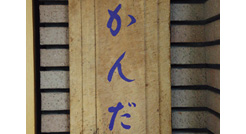 かんだ